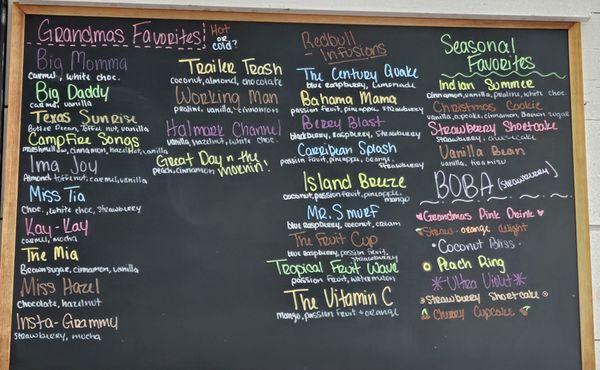 Grandmas Favorites
Hot
or
cold?
Big Momma
caramel, white choc.
Big Daddy
caramel, vanilla
Texas Sunrise
Butter Pecan, toffee nut, vanilla
Campfire Songs
marshmallow, cinnamon, hazelnut, vanilla
Ima Joy
Almond, toffeenut, caramel, vanilla
Miss Tia
Choc., white choc, strawberry
Kay-Kay
caramel, mocha
The Mia
Brown sugar, cinnamon, vanilla
Miss Hazel
Chocolate, hazelnut
Insta-Grammy
strawberry, mocha
Trailer Trash
coconut, almond, chocolate
Working Man
praline, vanilla, cinnamon
Hallmark Channel
vanilla, hazelnut, white choc.
Great Day n the
mornin!
peach, cinnamon
Redbull
Infusions
The Century Quake
blue raspberry, Lemonade
Bahama Mama
passion fruit, strawberry
Berry Blast
blackberry, raspberry, strawberry
Caribbean Splash
passion fruit, pineapple, orange,
strawberry
Island Breeze
coconut, passion fruit, pineapple,
mango
Mr. Smurf
blue raspberry, coconut, cream
The Fruit Cup
blue raspberry, passion fruit,
strawberry
Tropical Fruit Wave
passion fruit, watermelon
The Vitamin C
mango, passion fruit + orange
Seasonal
Favorites
Indian Summer
cinnamon, vanilla, praline, white choc.
Christmas Cookie
vanilla, cupcake, cinnamon, Brown sugar
Strawberry Shortcake
strawberry, cheesecake
Vanilla Bean
vanilla, tiramisu
BOBA (strawberry)
Grandmas Pink Drink
Straw-orange delight
Coconut Bliss
Peach Ring
Ultra Violet
Strawberry Shortcake
Cherry Cupcake